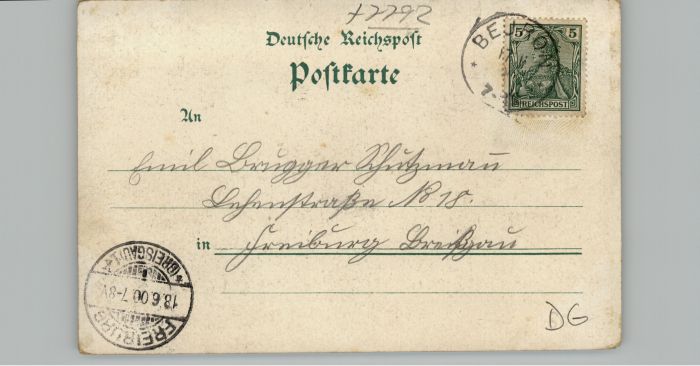 +2792
Deutsche Reichspost
Postkarte
5 5
REICHSPOST
7-
An
Emil Brugger Schutzmann
Lehenstraße No 18.
in Freiburg Breisgau
* (BREISGAU) *
18.6.00.7-8V.
FREIBURG
DG